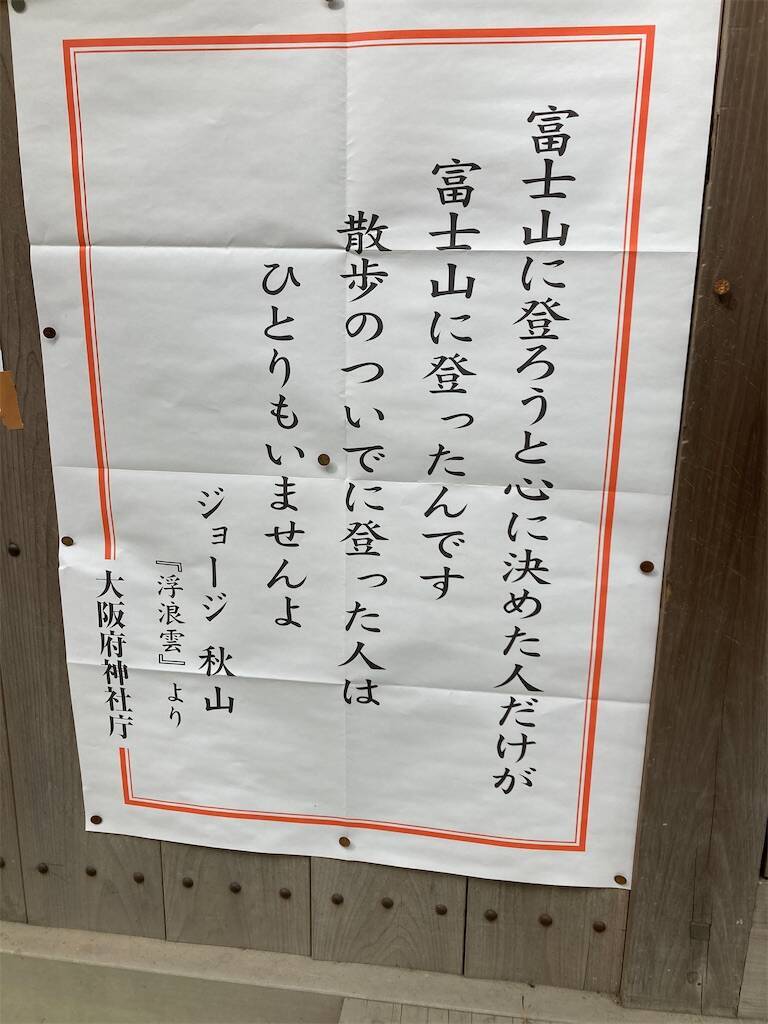 富士山に登ろうと心に決めた人だけが
富士山に登ったんです
散歩のついでに登った人は
ひとりもいませんよ
ジョージ 秋山
『浮浪雲』より
大阪府神社庁